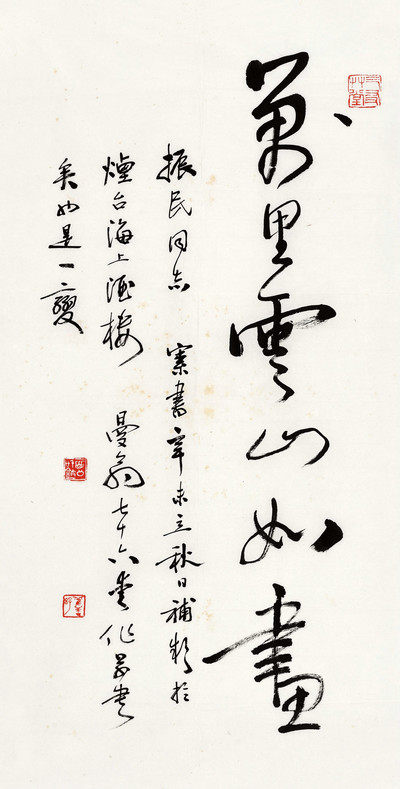 萬里雲山如畫
振民同志 索書辛未立秋日補款於
煙台海上酒樓 曼翁七十六叟作最
矣如是一變